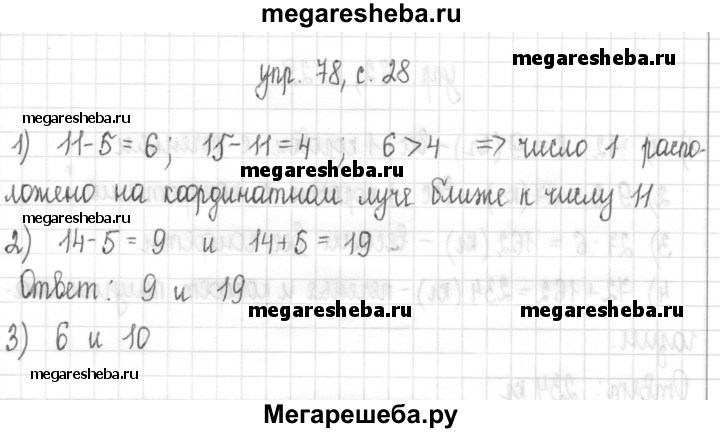 megaresheba.ru
упр. 78, с. 28
megaresheba.ru
megaresheba.ru
1) 11-5=6; 15-11=4; 6>4 => число 1 распо-
ложено на координатном луче ближе к числу 11
megaresheba.ru
megaresheba.ru
2) 14-5=9 и 14+5=19
Ответ: 9 и 19
megaresheba.ru
megaresheba.ru
3) 6 и 10
megaresheba.ru
Мегарешеба.ру